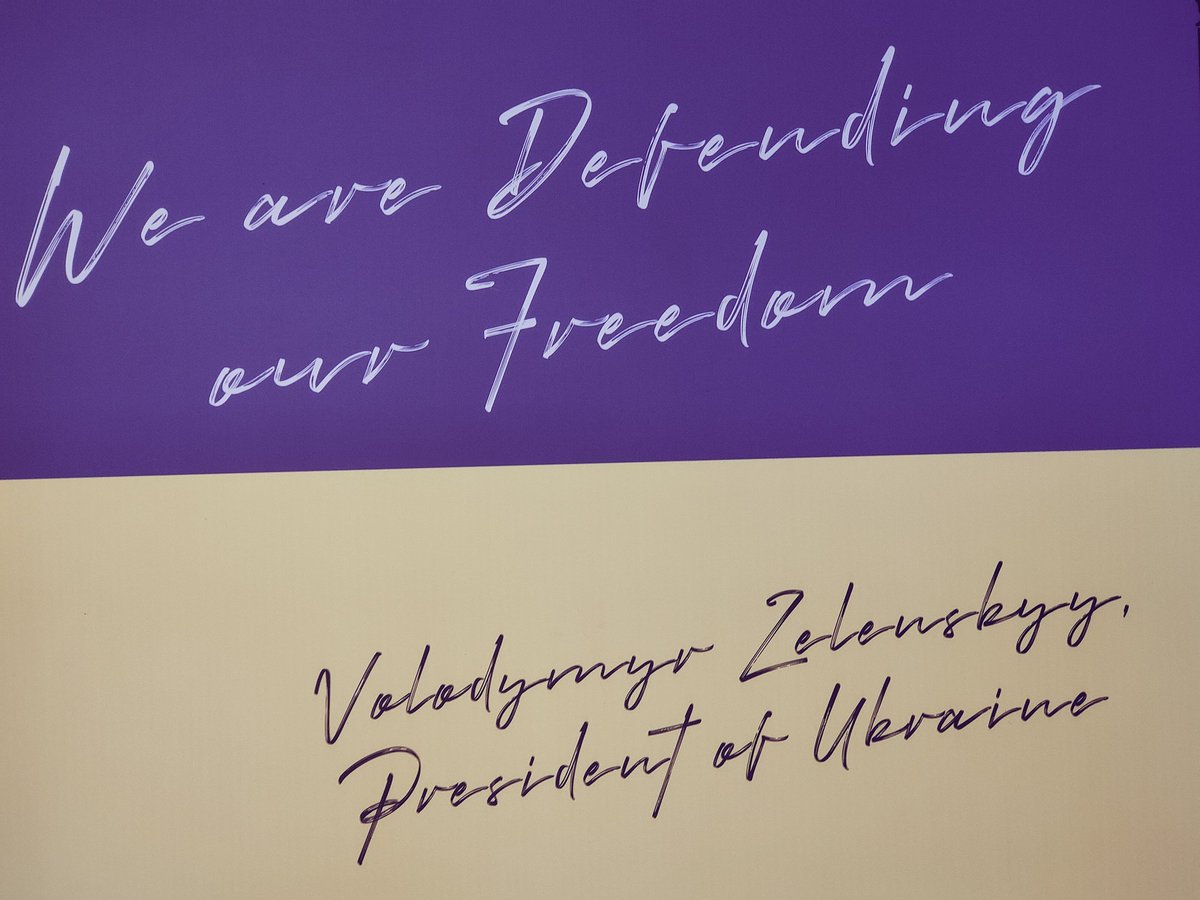 We are Defending
our Freedom
Volodymyr Zelenskyy,
President of Ukraine